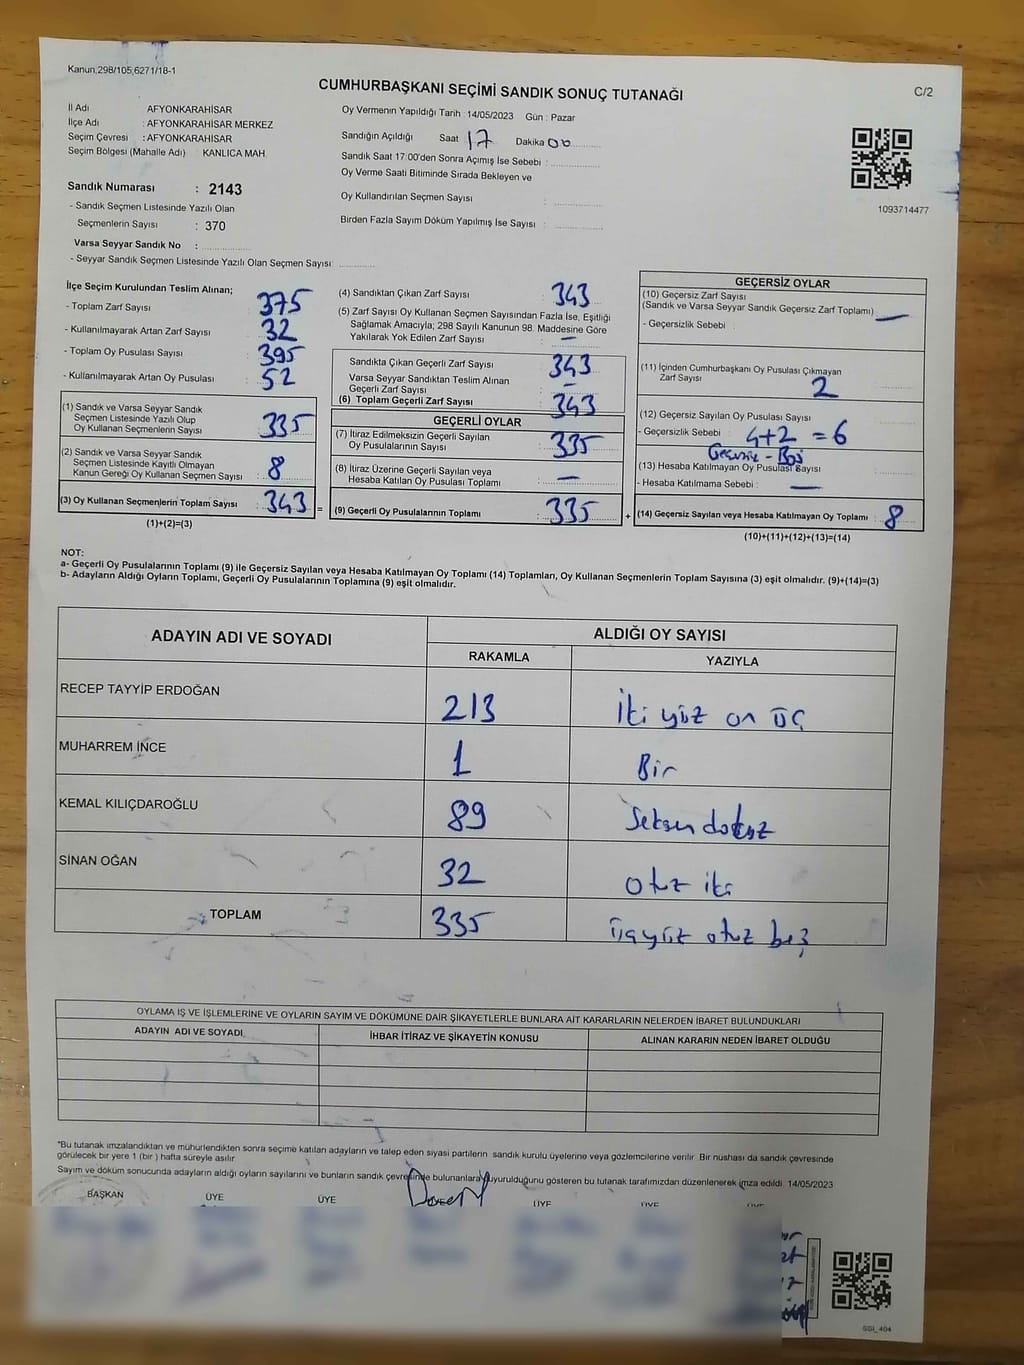 Kanun,298/105,6271/18-1
CUMHURBAŞKANI SEÇİMİ SANDIK SONUÇ TUTANAĞI
C/2
İl Adı AFYONKARAHİSAR
İlçe Adı : AFYONKARAHİSAR MERKEZ
Seçim Çevresi : AFYONKARAHİSAR
Seçim Bölgesi (Mahalle Adı) KANLICA MAH.
Sandık Numarası : 2143
- Sandık Seçmen Listesinde Yazılı Olan
Seçmenlerin Sayısı : 370
Varsa Seyyar Sandık No :
- Seyyar Sandık Seçmen Listesinde Yazılı Olan Seçmen Sayısı:
Oy Vermenin Yapıldığı Tarih : 14/05/2023 Gün : Pazar
Sandığın Açıldığı Saat 17 Dakika 00
Sandık Saat 17:00'den Sonra Açımış İse Sebebi :
Oy Verme Saati Bitiminde Sırada Bekleyen ve
Oy Kullandırılan Seçmen Sayısı :
Birden Fazla Sayım Döküm Yapılmış İse Sayısı :
1093714477
İlçe Seçim Kurulundan Teslim Alınan;
- Toplam Zarf Sayısı : 375
- Kullanılmayarak Artan Zarf Sayısı : 32
- Toplam Oy Pusulası Sayısı : 395
- Kullanılmayarak Artan Oy Pusulası : 52
(1) Sandık ve Varsa Seyyar Sandık
Seçmen Listesinde Yazılı Olup
Oy Kullanan Seçmenlerin Sayısı : 335
(2) Sandık ve Varsa Seyyar Sandık
Seçmen Listesinde Kayıtlı Olmayan
Kanun Gereği Oy Kullanan Seçmen Sayısı : 8
(3) Oy Kullanan Seçmenlerin Toplam Sayısı : 343 =
(1)+(2)=(3)
(4) Sandıktan Çıkan Zarf Sayısı : 343
(5) Zarf Sayısı Oy Kullanan Seçmen Sayısından Fazla İse, Eşitliği
Sağlamak Amacıyla; 298 Sayılı Kanunun 98. Maddesine Göre
Yakılarak Yok Edilen Zarf Sayısı : —
Sandıkta Çıkan Geçerli Zarf Sayısı : 343
Varsa Seyyar Sandıktan Teslim Alınan
Geçerli Zarf Sayısı : —
(6) Toplam Geçerli Zarf Sayısı : 343
GEÇERLİ OYLAR
(7) İtiraz Edilmeksizin Geçerli Sayılan
Oy Pusulalarının Sayısı : 335
(8) İtiraz Üzerine Geçerli Sayılan veya
Hesaba Katılan Oy Pusulası Toplamı : —
(9) Geçerli Oy Pusulalarının Toplamı : 335 +
GEÇERSİZ OYLAR
(10) Geçersiz Zarf Sayısı
(Sandık ve Varsa Seyyar Sandık Geçersiz Zarf Toplamı) —
- Geçersizlik Sebebi :
(11) İçinden Cumhurbaşkanı Oy Pusulası Çıkmayan
Zarf Sayısı 2
(12) Geçersiz Sayılan Oy Pusulası Sayısı
- Geçersizlik Sebebi : 4+2 = 6
Geçersiz - Boş
(13) Hesaba Katılmayan Oy Pusulası Sayısı
- Hesaba Katılmama Sebebi : —
(14) Geçersiz Sayılan veya Hesaba Katılmayan Oy Toplamı : 8
(10)+(11)+(12)+(13)=(14)
NOT:
a- Geçerli Oy Pusulalarının Toplamı (9) ile Geçersiz Sayılan veya Hesaba Katılmayan Oy Toplamı (14) Toplamları, Oy Kullanan Seçmenlerin Toplam Sayısına (3) eşit olmalıdır. (9)+(14)=(3)
b- Adayların Aldığı Oyların Toplamı, Geçerli Oy Pusulalarının Toplamına (9) eşit olmalıdır.
ADAYIN ADI VE SOYADI ALDIĞI OY SAYISI
RAKAMLA YAZIYLA
RECEP TAYYİP ERDOĞAN 213 İki yüz on üç
MUHARREM İNCE 1 Bir
KEMAL KILIÇDAROĞLU 89 Seksen dokuz
SİNAN OĞAN 32 otuz iki
TOPLAM 335 üçyüz otuz beş
OYLAMA İŞ VE İŞLEMLERİNE VE OYLARIN SAYIM VE DÖKÜMÜNE DAİR ŞİKAYETLERLE BUNLARA AİT KARARLARIN NELERDEN İBARET BULUNDUKLARI
ADAYIN ADI VE SOYADI İHBAR İTİRAZ VE ŞİKAYETİN KONUSU ALINAN KARARIN NEDEN İBARET OLDUĞU
"Bu tutanak imzalandıktan ve mühürlendikten sonra seçime katılan adayların ve talep eden siyasi partilerin sandık kurulu üyelerine veya gözlemcilerine verilir. Bir nüshası da sandık çevresinde
görülecek bir yere 1 (bir) hafta süreyle asılır.
Sayım ve döküm sonucunda adayların aldığı oyların sayılarını ve bunların sandık çevresinde bulunanlara duyurulduğunu gösteren bu tutanak tarafımızdan düzenlenerek imza edildi. 14/05/2023
BAŞKAN ÜYE ÜYE ÜYE ÜYE ÜYE
SSI_404